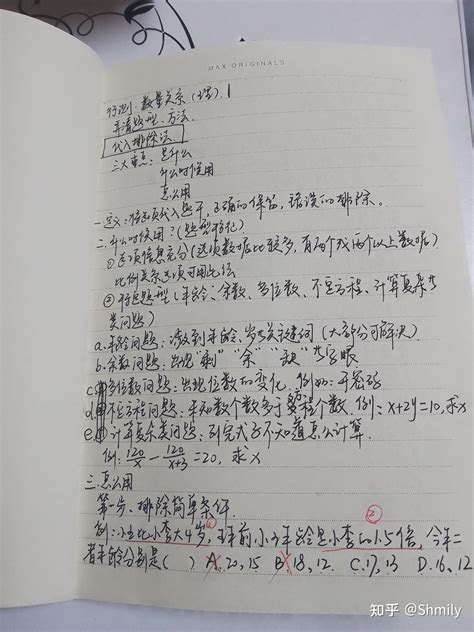 MAX ORIGINALS
行测：数量关系（理）1
弄清题型、方法
代入排除法
三大重点：是什么
什么时候用
怎么用
一.定义：将选项代入题干，正确的保留，错误的排除。
二.什么时候用？（题型特征）
①选项信息充分（选项数据比较多，有两个或两个以上数据）
比例关系选项可用此法
②特定题型（年龄、余数、多位数、不定方程、计算复杂
类问题）
a.年龄问题：涉及到年龄、岁等关键词（大部分可解决）
b.余数问题：出现“剩”“余”“缺”等字眼
c.多位数问题：出现位数的变化，例如：开密码
d.不定方程问题：未知数个数多于方程个数，例：x+2y=10，求x
e.计算复杂类问题：列完式子不知道怎么计算.
例：120/x - 120/(x+3) =20，求x
三.怎么用
第一步、排除简单条件.
例：小王比小李大4岁，年前小王年龄是小李的1.5倍，今年二
① ②
者年龄分别是（ ）A.20，15 B.18，12. C.17，13 D.16、12
知乎 @Shmily